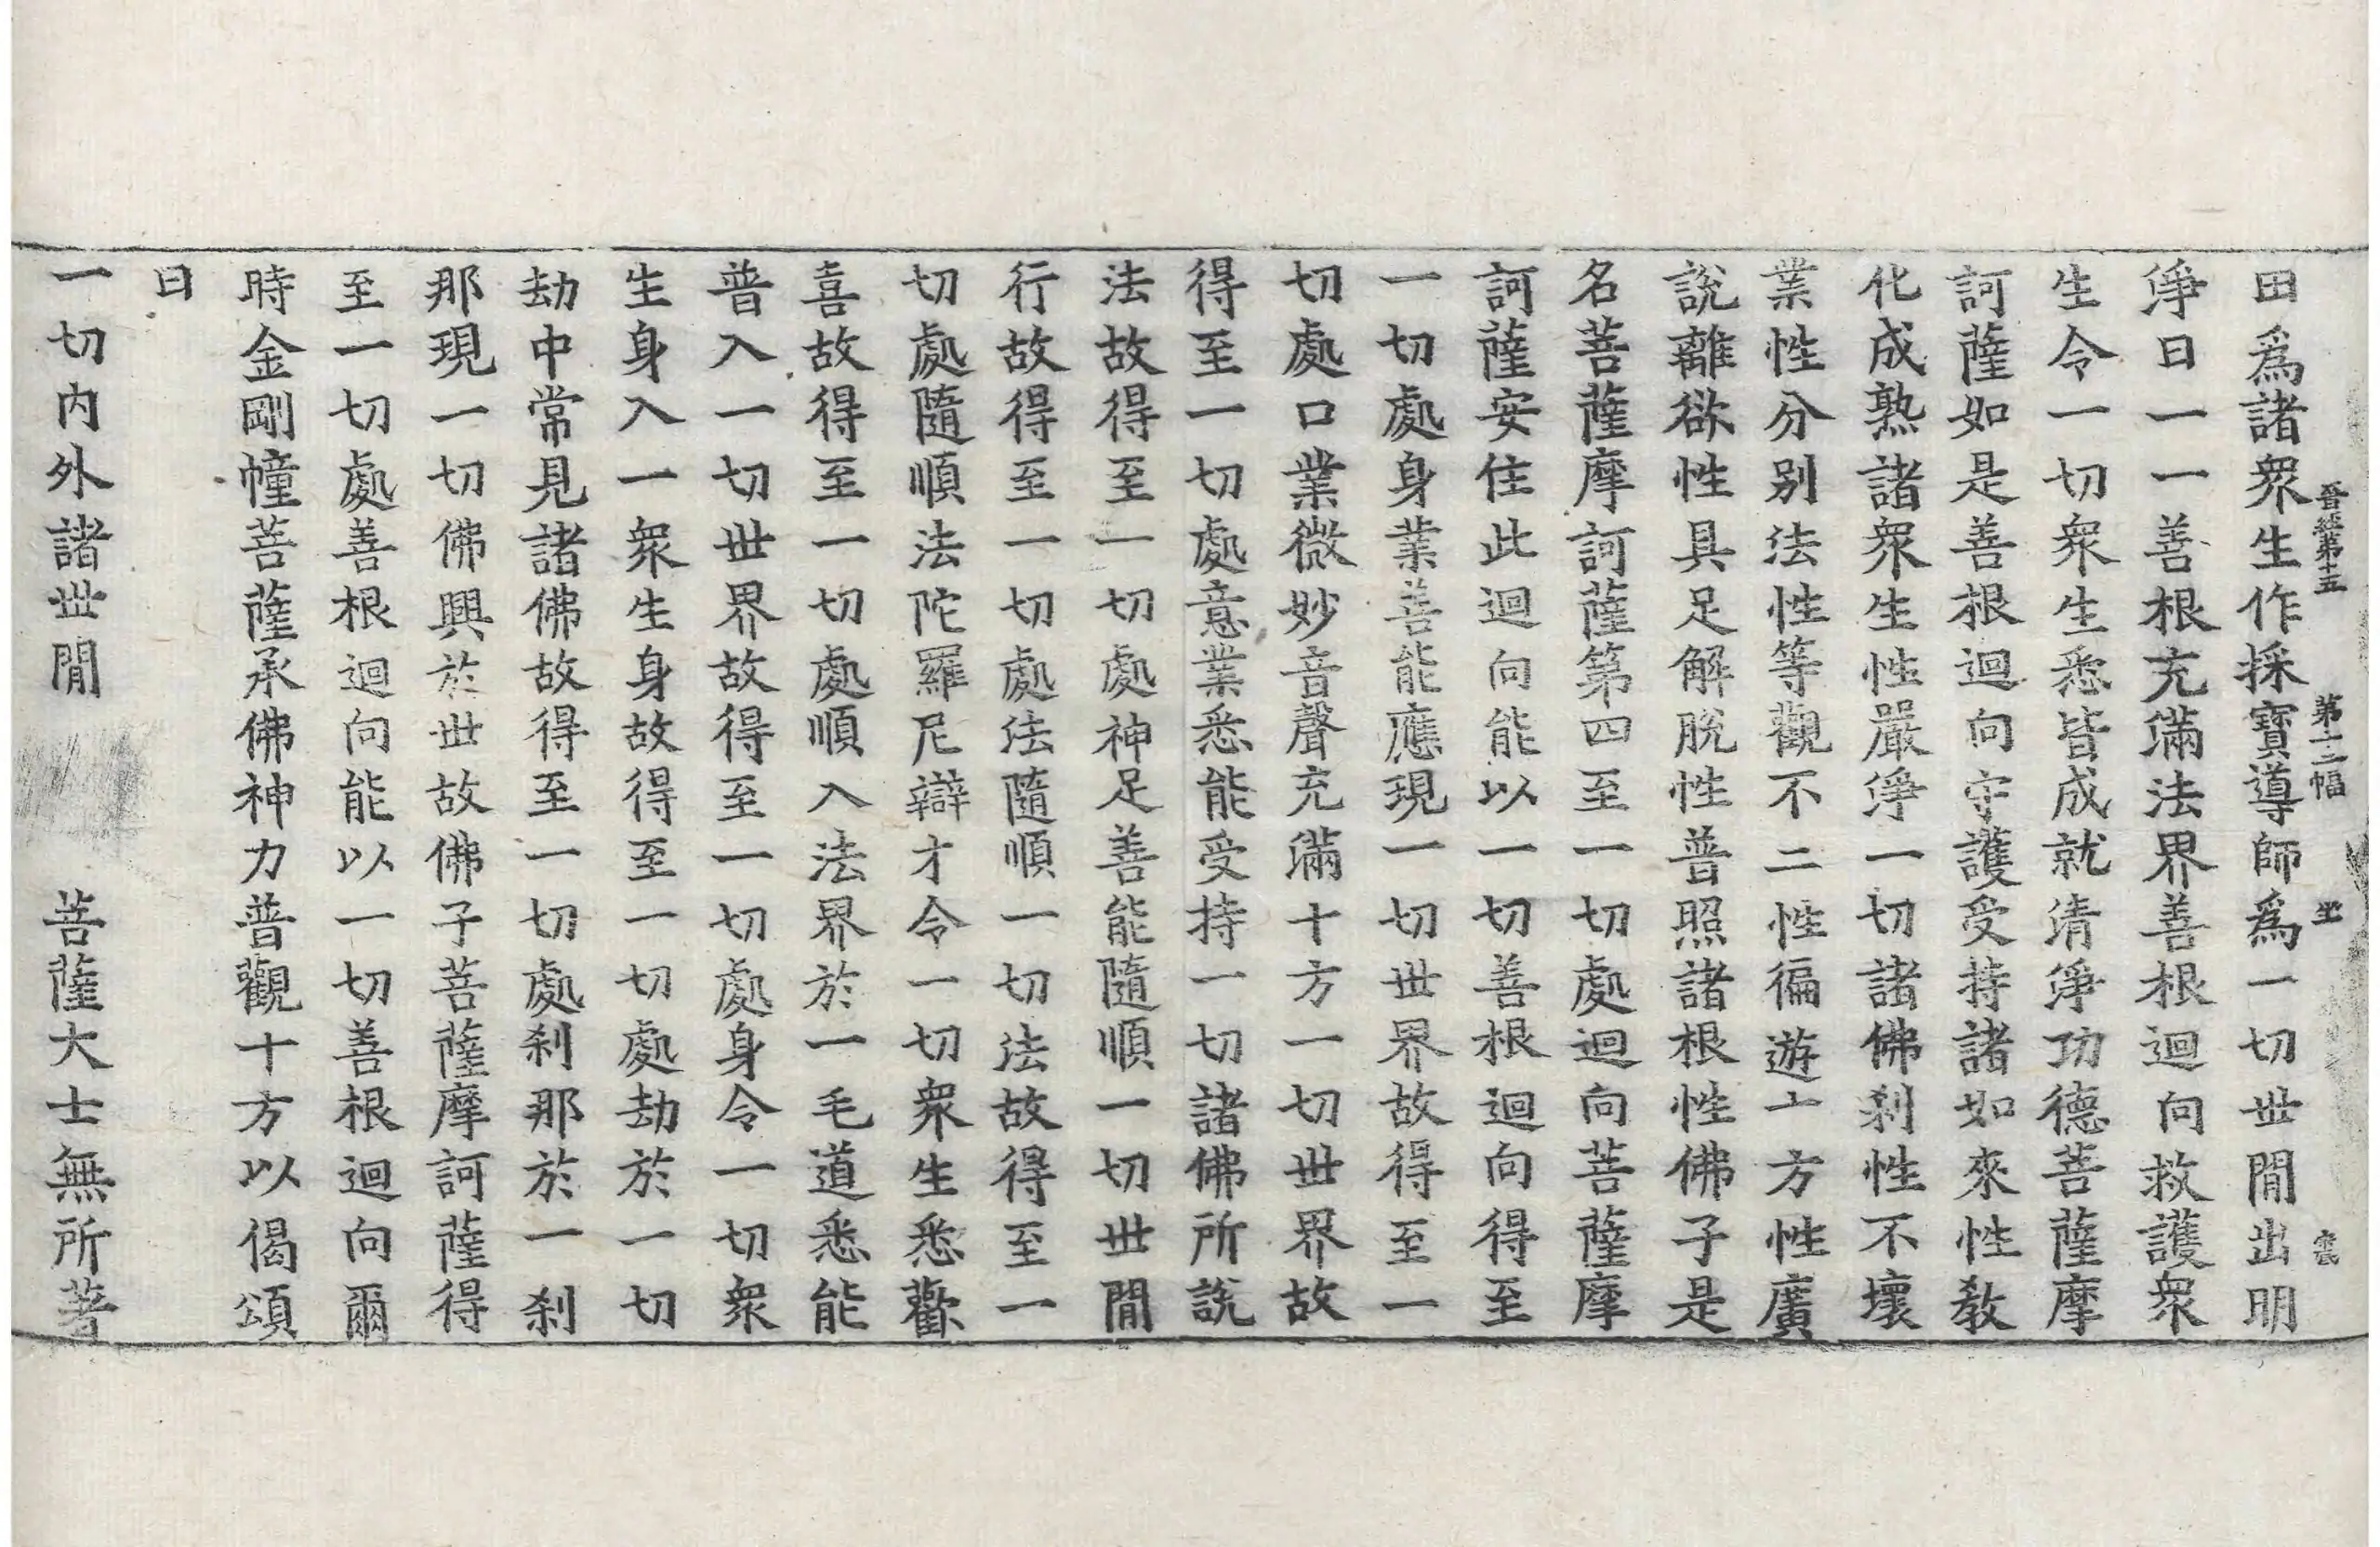 晉經第十五 第十二幅 坐
田爲諸衆生作採寶導師爲一切世閒出明
淨日一一善根充滿法界善根迴向救護衆
生令一切衆生悉皆成就清淨功德菩薩摩
訶薩如是善根迴向守護受持諸如來性教
化成熟諸衆生性嚴淨一切諸佛刹性不壞
業性分别法性等觀不二性徧遊十方性廣
說離欲性具足解脫性普照諸根性佛子是
名菩薩摩訶薩第四至一切處迴向菩薩摩
訶薩安住此迴向能以一切善根迴向得至
一切處身業善能應現一切世界故得至一
切處口業微妙音聲充滿十方一切世界故
得至一切處意業悉能受持一切諸佛所說
法故得至一切處神足善能隨順一切世閒
行故得至一切處法隨順一切法故得至一
切處隨順法陀羅尼辯才令一切衆生悉歡
喜故得至一切處順入法界於一毛道悉能
普入一切世界故得至一切處身令一切衆
生身入一衆生身故得至一切處劫於一切
劫中常見諸佛故得至一切處刹那於一刹
那現一切佛興於世故佛子菩薩摩訶薩得
至一切處善根迴向能以一切善根迴向爾
時金剛幢菩薩承佛神力普觀十方以偈頌
曰
一切内外諸世閒 菩薩大士無所著